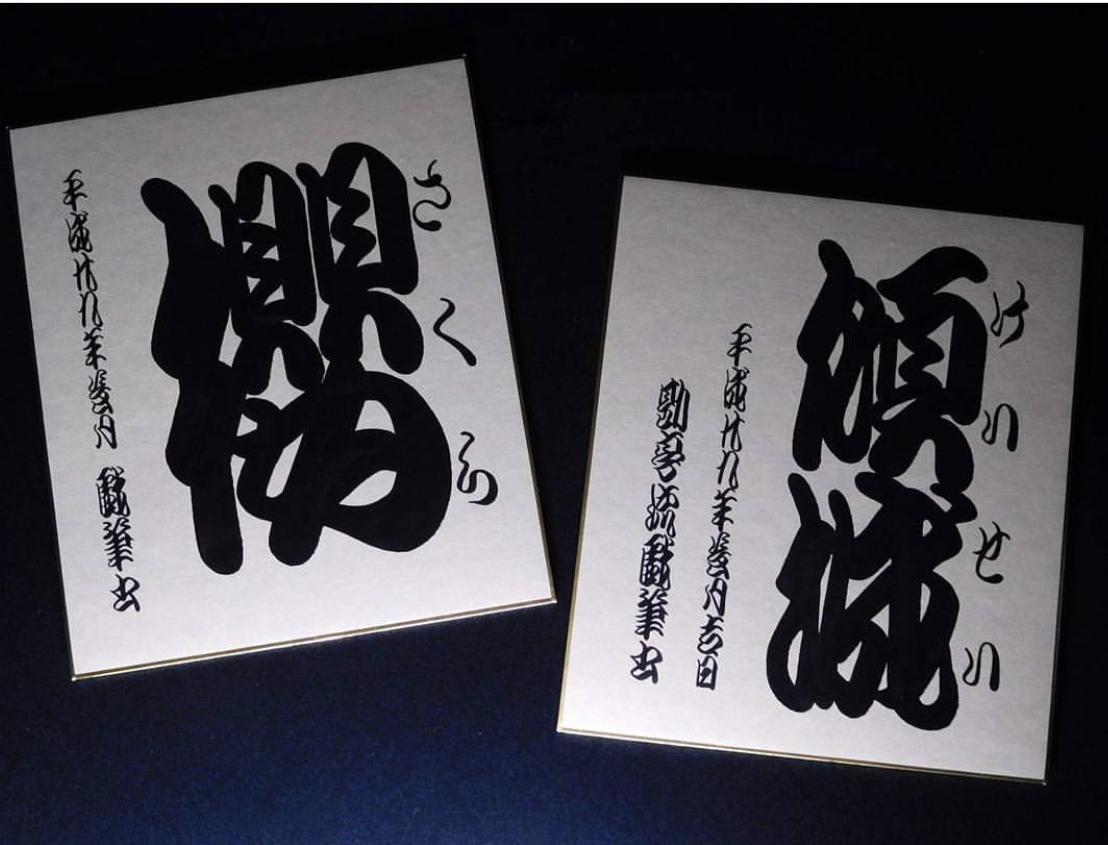 けいせい
傾城
平成廿九年月吉日
勘亭流戯筆書
さくら
櫻
平成廿九年月 戯筆書